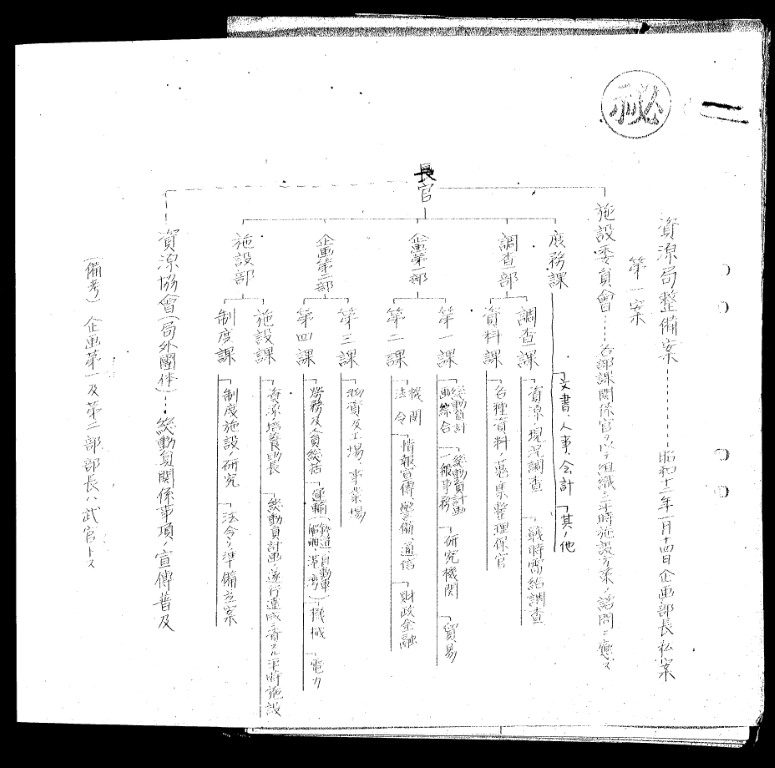 ㊙
資源局整備案………昭和十二年一月十四日企画部長私案
第一案
長官
施設委員會……各部課關係官ヲ以テ組織シ平時施設方策ノ諮問ニ應ズ
庶務課
「文書、人事、会計 「其ノ他
調査部
調査課
「資源ノ現況調査 「戦時需給調査
資料課
「各種資料ノ蒐集整理保管
企画第一部
第一課
「総動員計画綜合 「総動員計画一般事務 「研究機関 「貿易
第二課
機関
法令
「情報宣傳 警備 通信 「財政金融
企画第二部
第三課
「物資及工場、事業場
第四課
「労務及人員総括 「運輸(鉄道 自動車 船舶 港湾) 「機械 「電力
施設部
施設課
「資源培養助長 「総動員計画ノ遂行達成ニ資スル平時施設
制度課
「制度施設ノ研究 「法令ノ準備立案
資源協會(局外團体)…総動員關係事項ノ宣傳普及
(備考) 企画第一及第二部部長ハ武官トス